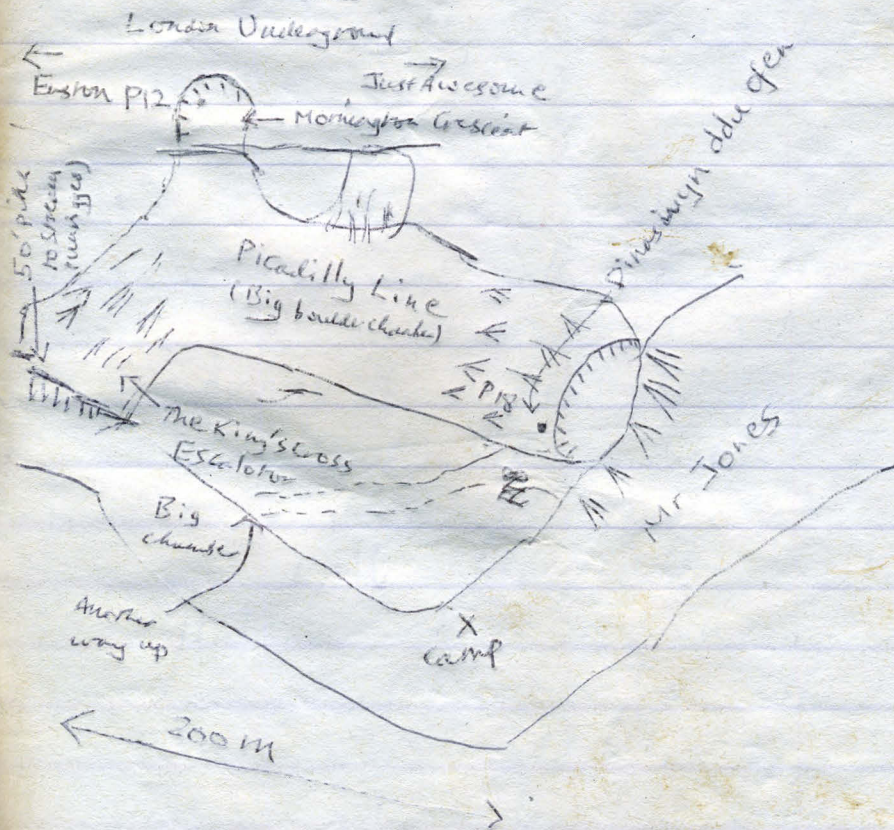 London Underground
Euston P12
Just Awesome
Mornington Crescent
50' pitch
to stream
(unrigged)
Picadilly Line
(Big boulder chamber)
P18
The King's Cross
Escalator
Mr Jones
Big
chamber
Another
way up
camp
200m